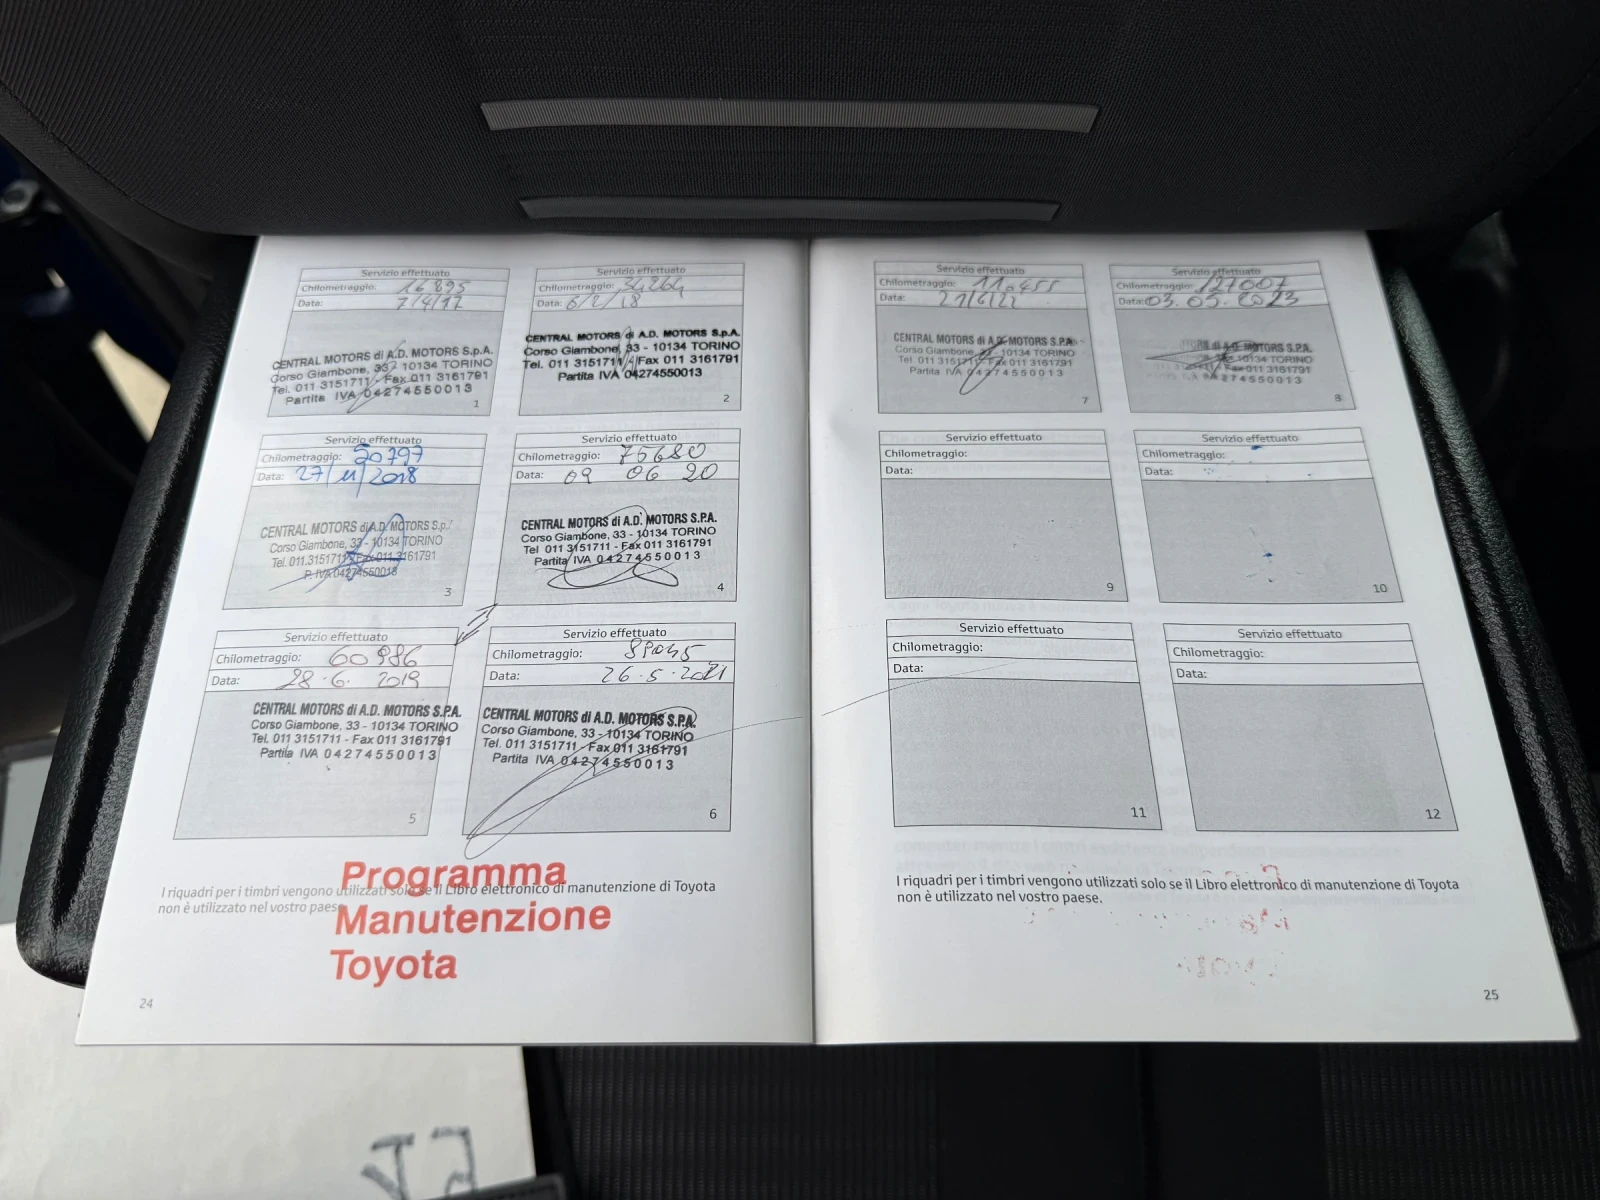 Servizio effettuato
Chilometraggio: 16895
Data: 7/4/17
CENTRAL MOTORS di A.D. MOTORS S.p.A.
Corso Giambone, 33 - 10134 TORINO
Tel. 011 3151711 - Fax 011 3161791
Partita IVA 04274550013
1
Servizio effettuato
Chilometraggio: 34264
Data: 6/2/18
CENTRAL MOTORS di A.D. MOTORS S.p.A.
Corso Giambone, 33 - 10134 TORINO
Tel. 011 3151711 - Fax 011 3161791
Partita IVA 04274550013
2
Servizio effettuato
Chilometraggio: 50797
Data: 27/11/2018
CENTRAL MOTORS di A.D. MOTORS S.p.A.
Corso Giambone, 33 - 10134 TORINO
Tel. 011.3151711 - Fax 011 3161791
P. IVA 04274550013
3
Servizio effettuato
Chilometraggio: 75680
Data: 09 06 20
CENTRAL MOTORS di A.D. MOTORS S.P.A.
Corso Giambone, 33 - 10134 TORINO
Tel 011 3151711 - Fax 011 3161791
Partita IVA 04274550013
4
Servizio effettuato
Chilometraggio: 60986
Data: 28.6. 2019
CENTRAL MOTORS di A.D. MOTORS S.P.A.
Corso Giambone, 33 - 10134 TORINO
Tel. 011 3151711 - Fax 011 3161791
Partita IVA 04274550013
5
Servizio effettuato
Chilometraggio:
Data: 26.5.2021
CENTRAL MOTORS di A.D. MOTORS S.P.A.
Corso Giambone, 33 - 10134 TORINO
Tel. 011 3151711 - Fax 011 3161791
Partita IVA 04274550013
6
Programma
I riquadri per i timbri vengono utilizzati solo se il Libro elettronico di manutenzione di Toyota
non è utilizzato nel vostro paese.
Manutenzione
Toyota
24
Servizio effettuato
Chilometraggio: 110455
Data: 21/6/22
CENTRAL MOTORS di A.D. MOTORS S.P.A.
Corso Giambone, 33 - 10134 TORINO
Tel. 011 3151711 - Fax 011 3161791
Partita IVA 04274550013
7
Servizio effettuato
Chilometraggio: 127007
Data: 03.05.2023
di A.D. MOTORS S.P.A.
10134 TORINO
Fax 011 3161791
04274550013
8
Servizio effettuato
Chilometraggio:
Data:
9
Servizio effettuato
Chilometraggio:
Data:
10
Servizio effettuato
Chilometraggio:
Data:
11
Servizio effettuato
Chilometraggio:
Data:
12
I riquadri per i timbri vengono utilizzati solo se il Libro elettronico di manutenzione di Toyota
non è utilizzato nel vostro paese.
25